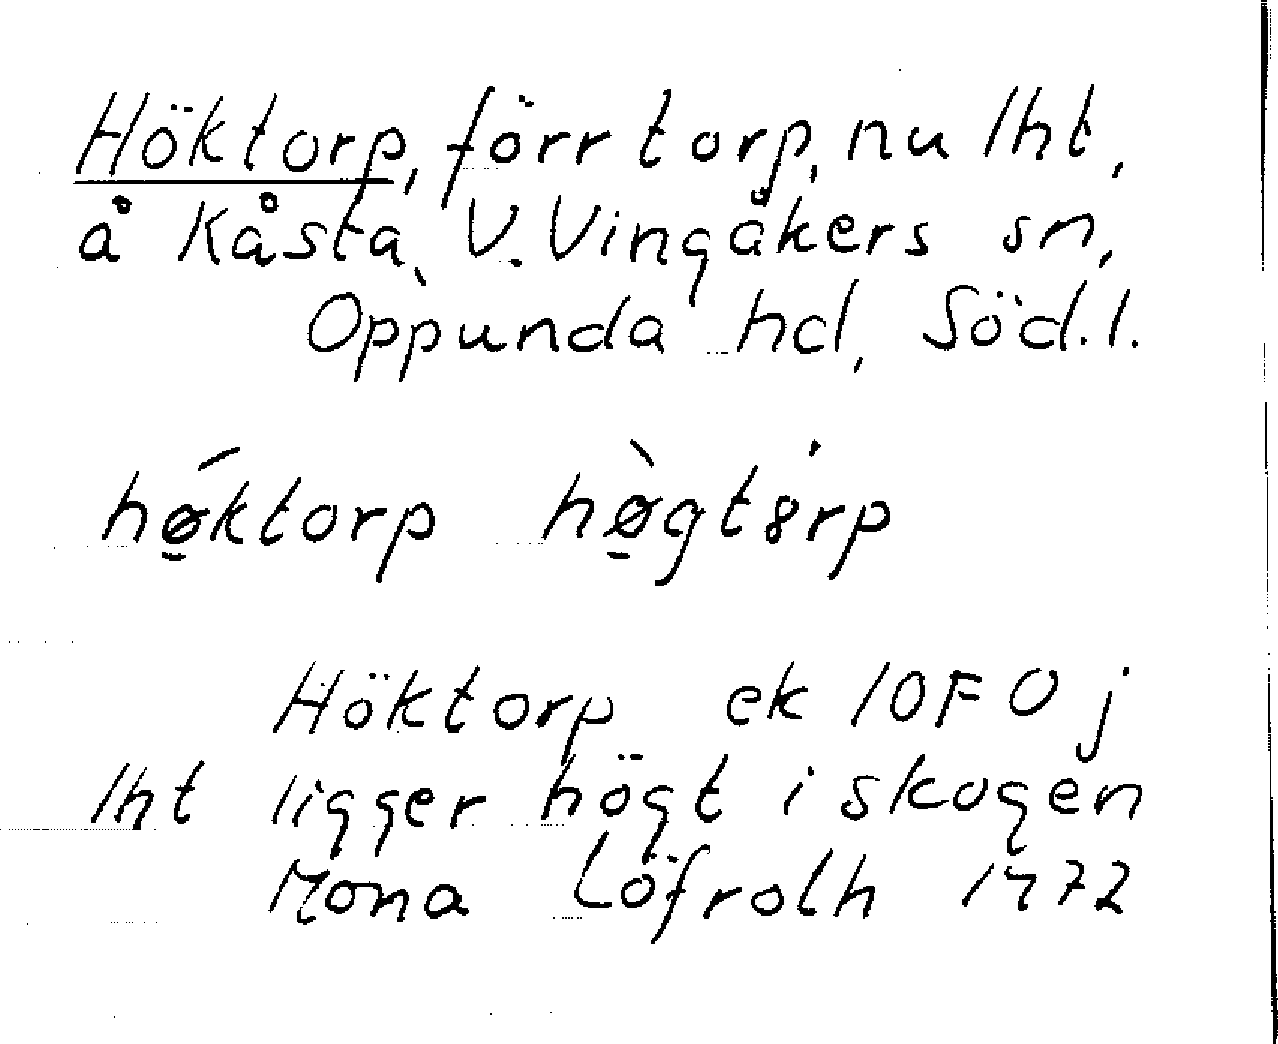 Höktorp, förr torp, nu lht,
å Kåsta, V. Vingåkers sn,
Oppunda hd, Söd.l.
hǿ̱ktorp hø̱̀gtȯrp
Höktorp ek 10F 0 j
lht ligger högt i skogen
Mona Löfroth 1972